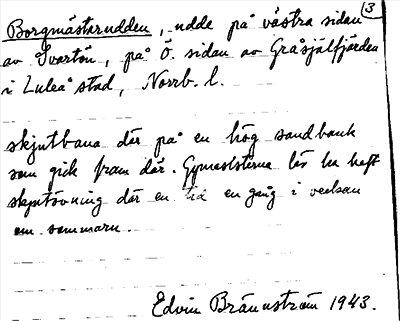 Borgmästarudden, udde på västra sidan 3
av Svartön, på Ö. sidan av Gråsjälfjärden
i Luleå stad, Norrb. l.
skjutbana där på en hög sandbank
som gick fram där. Gymnasisterna lär ha haft
skjutövning där en tid en gång i veckan
om sommarn.
Edvin Brännström 1943.